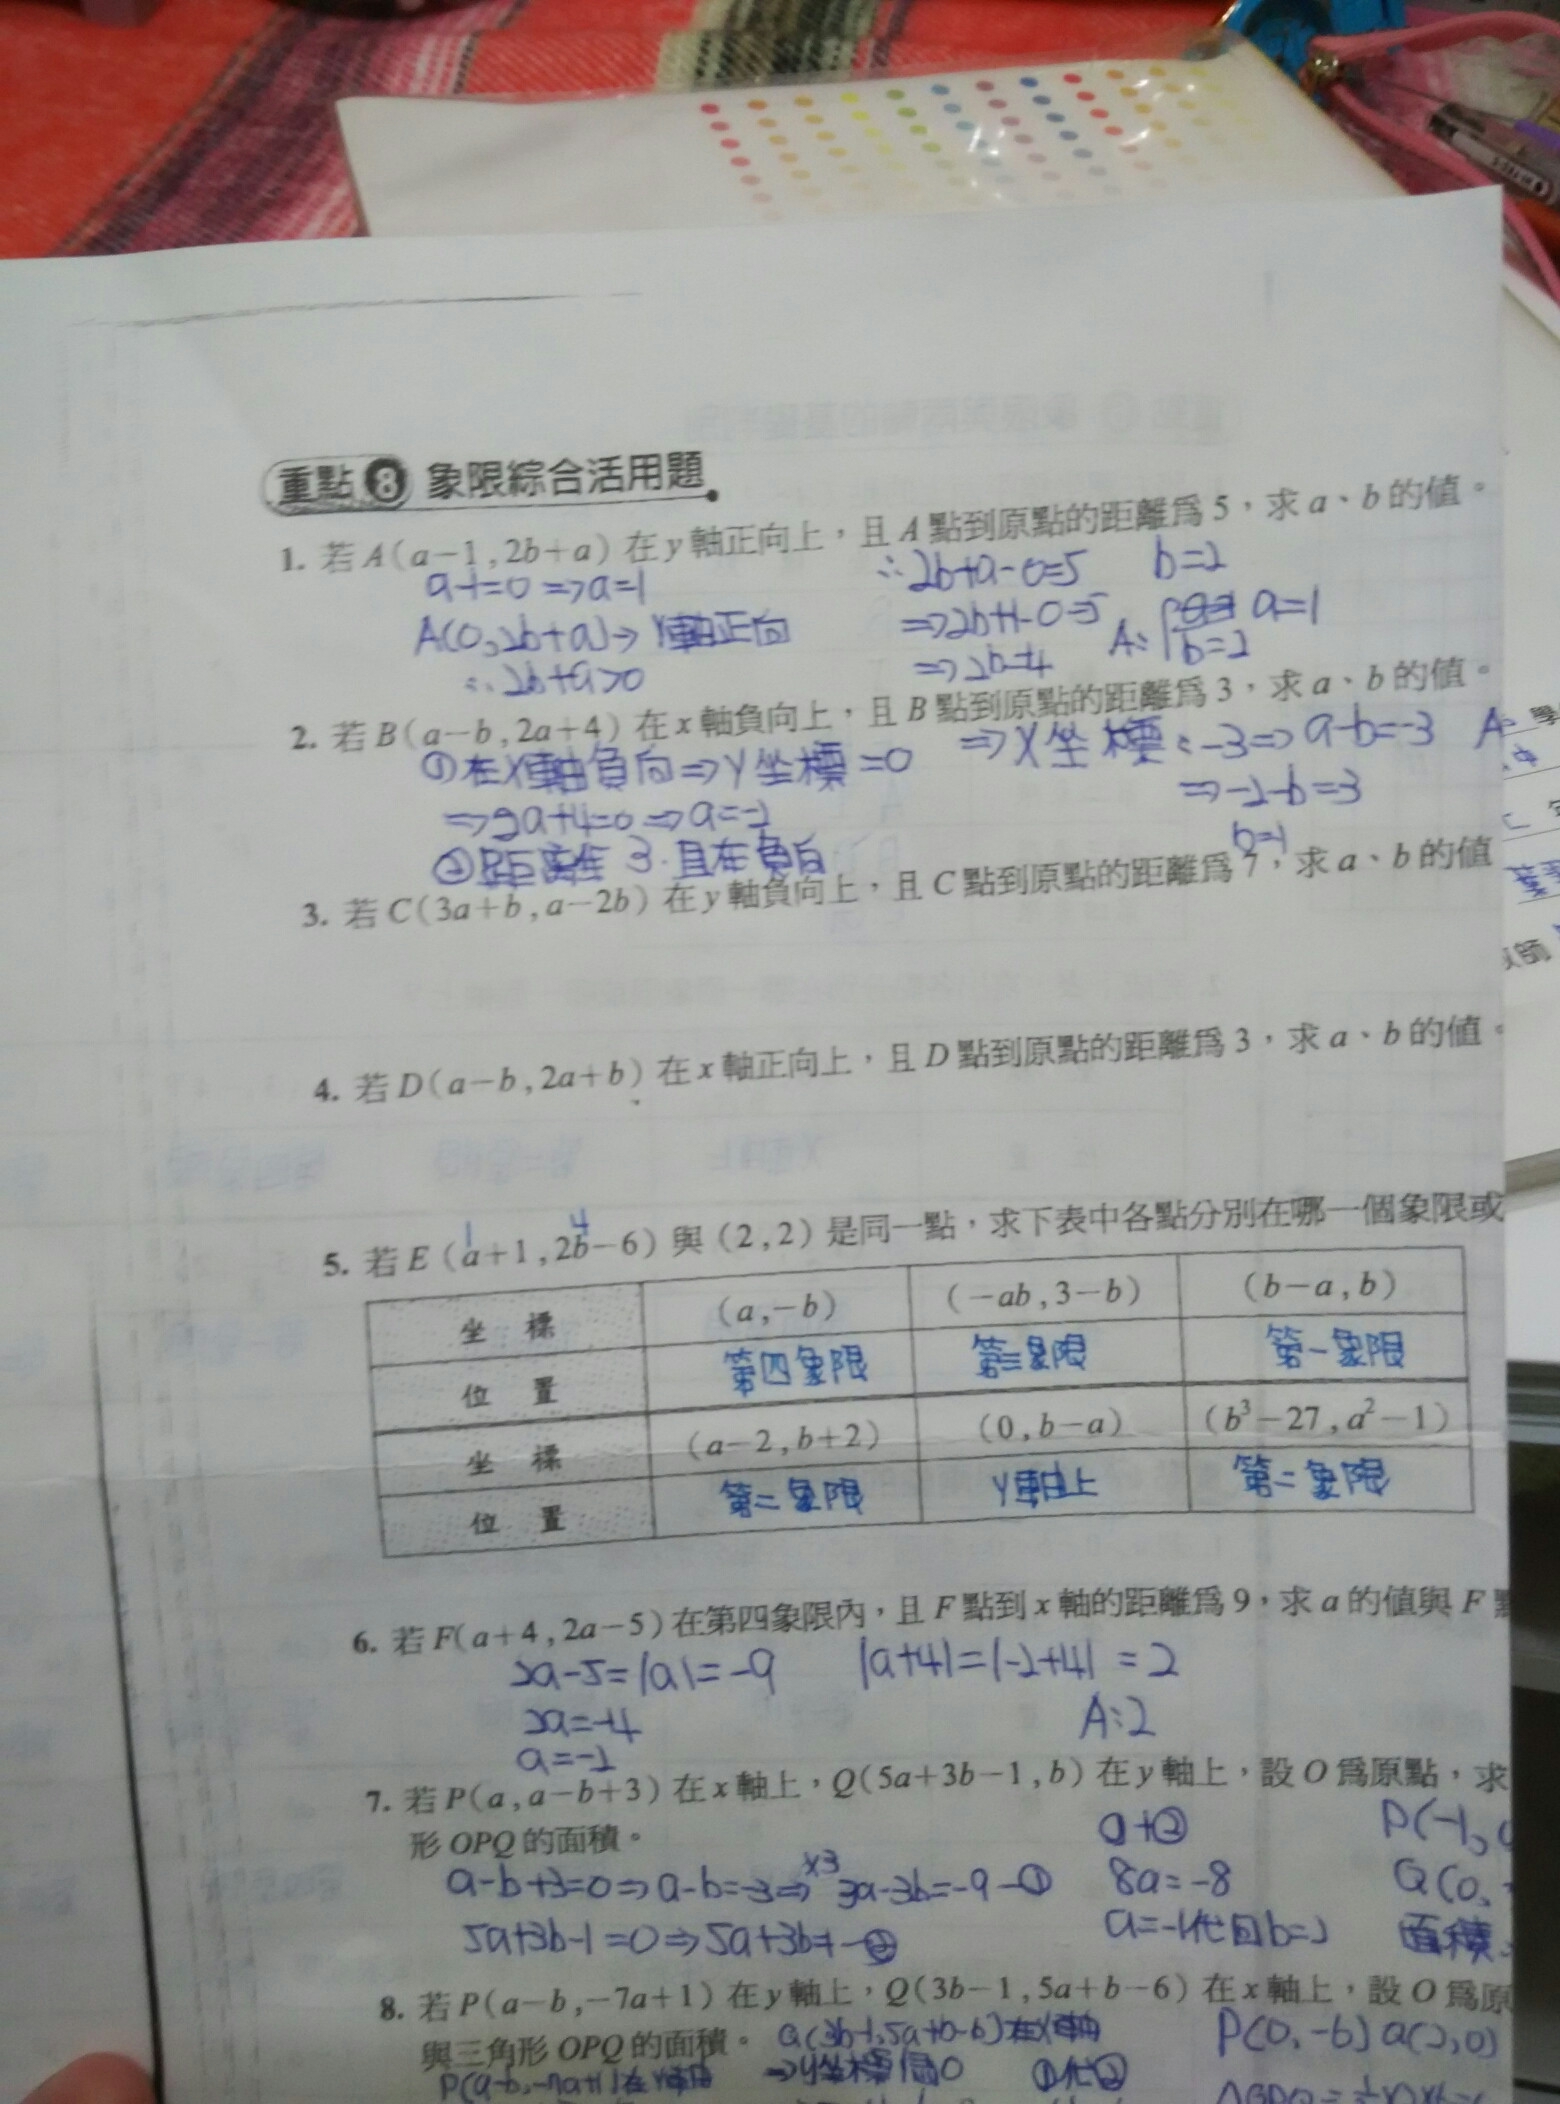 重點 8 象限綜合活用題
1. 若 A(a-1, 2b+a) 在 y 軸正向上，且 A 點到原點的距離為 5，求 a、b 的值。
a-1=0 ⇒ a=1
A(0, 2b+a) → Y軸正向
∴ 2b+a>0
∴ 2b+a-0=5
⇒ 2b+1-0=5
⇒ 2b=4
b=2
A: a=1
b=2
2. 若 B(a-b, 2a+4) 在 x 軸負向上，且 B 點到原點的距離為 3，求 a、b 的值。
①在X軸負向 ⇒ Y坐標=0
⇒ 2a+4=0 ⇒ a=-2
②距離是 3，且在負向
⇒ X坐標：-3 ⇒ a-b=-3
⇒ -2-b=3
b=1
A:
3. 若 C(3a+b, a-2b) 在 y 軸負向上，且 C 點到原點的距離為 7，求 a、b 的值
4. 若 D(a-b, 2a+b) 在 x 軸正向上，且 D 點到原點的距離為 3，求 a、b 的值。
1 4
5. 若 E (a+1, 2b-6) 與 (2, 2) 是同一點，求下表中各點分別在哪一個象限或
坐標 (a, -b) (-ab, 3-b) (b-a, b)
位置 第四象限 第三象限 第一象限
坐標 (a-2, b+2) (0, b-a) (b³-27, a²-1)
位置 第二象限 Y軸上 第二象限
6. 若 F(a+4, 2a-5) 在第四象限內，且 F 點到 x 軸的距離為 9，求 a 的值與 F 點
2a-5=|a|=-9
2a=-4
a=-2
|a+4|=|-2+4| =2
A:2
7. 若 P(a, a-b+3) 在 x 軸上，Q(5a+3b-1, b) 在 y 軸上，設 O 為原點，求
形 OPQ 的面積。
a-b+3=0 ⇒ a-b=-3 ⇒ ×3 3a-3b=-9 -①
5a+3b-1=0 ⇒ 5a+3b=1-②
①+②
8a=-8
a=-1代回b=2
P(-1,
Q(0,
面積
8. 若 P(a-b, -7a+1) 在 y 軸上，Q(3b-1, 5a+b-6) 在 x 軸上，設 O 為原
與三角形 OPQ 的面積。
Q(3b-1, 5a+b-6)在X軸
P(a-b, -7a+1)在Y軸
⇒ Y坐標 0
①代②
P(0, -6) Q(2, 0)